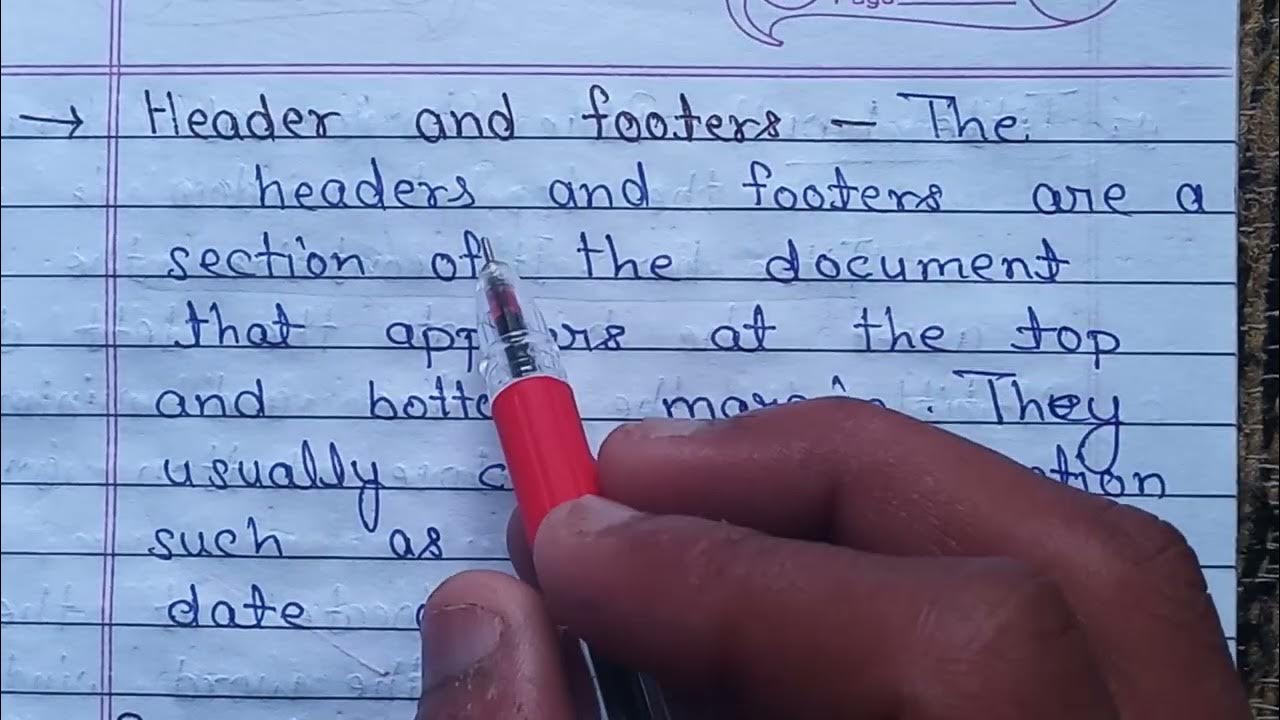 Page
→ Header and footers - The
headers and footers are a
section of the document
that appears at the top
and margin. They
usually
such as
date